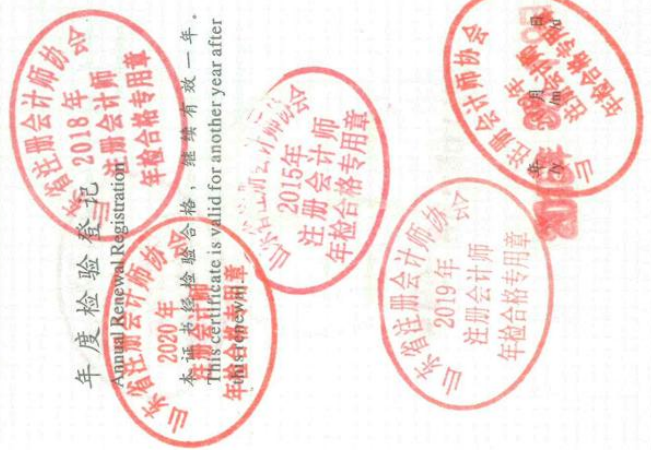 年度检验登记
Annual Renewal Registration
本证书经检验合格，继续有效一年。
This certificate is valid for another year after
this renewal.
山东省注册会计师协会
2018年
注册会计师
年检合格专用章
山东省注册会计师协会
2020年
注册会计师
年检合格专用章
山东省注册会计师协会
2015年
注册会计师
年检合格专用章
山东省注册会计师协会
2019年
注册会计师
年检合格专用章
注册会计师协会
年
注册会计师
年检合格专用章
年 月 日
/y /m /d